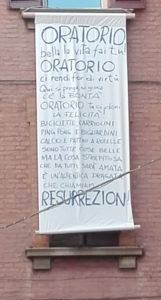 ORATORIO
bella la vita fai tu!
ORATORIO
ci rendi for di virtù
Qui si prega si gioca
c'è la SANTA
ORATORIO
LA FELICITÀ!
BICICLETTE CARRIOLINI
PING PONG E BIGLIARDINI
CALCIO E PATTINI A ROTELLE
SONO TUTTE COSE BELLE
MA LA COSA STREPITOSA
CHE DA TUTTI SARÀ AMATA
È UN'AUTENTICA DROGATA
CHE CHIAMIAM
RESURREZION!